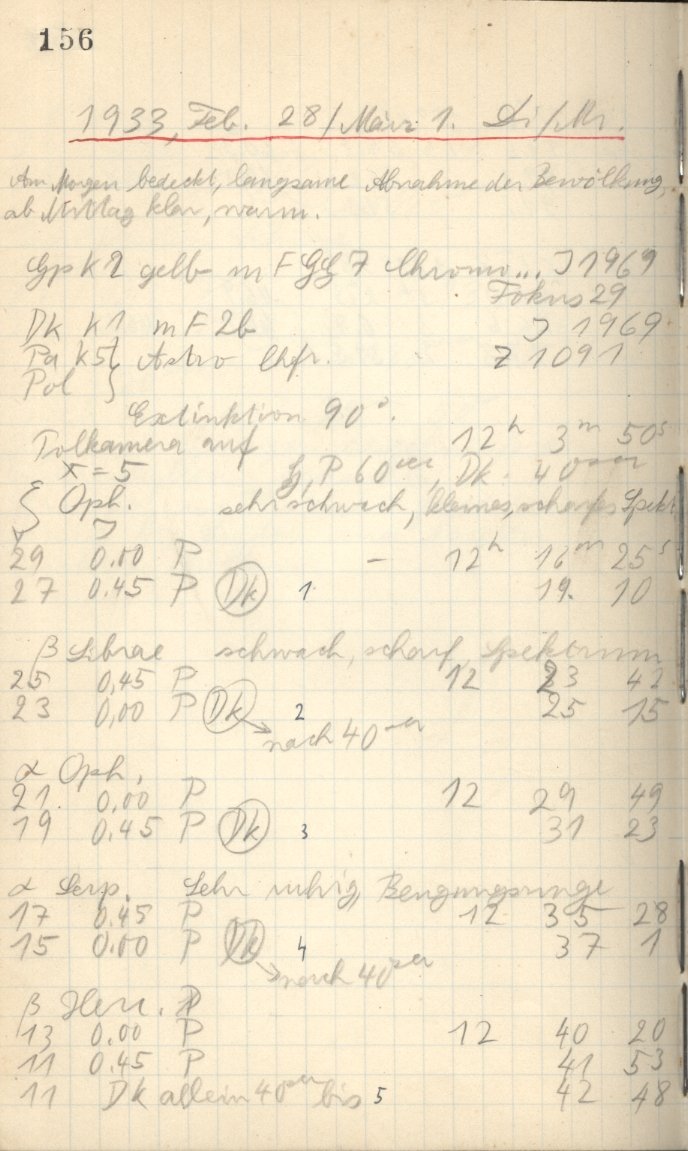 156
1933, Feb. 28/März 1. Di/Mi.
Am Morgen bedeckt, langsame Abnahme der Bewölkung,
ab Mittag klar, warm.
Gp K2 gelb m F GG 7 Chromo... J 1969
Fokus 29
Dk K1 m F 2b J 1969
Pa K5 } Astro Chfr. Z 1091
Pol }
Extinktion 90°.
Polkamera auf 12h 3m 50s
x = 5 G, P 60sec, Dk. 40sec
ξ Oph. sehr schwach, kleines, scharfes Spekt
J
29 0.00 P - 12h 16m 25s
27 0.45 P Dk 1 19. 10
β Librae schwach, scharf, Spektrum
25 0,45 P 12 23 42
23 0,00 P Dk 2 25 15
nach 40sec
α Oph.
21. 0.00 P 12 29 49
19 0.45 P Dk 3 31 23
α Serp. Sehr ruhig, Beugungsringe
17 0.45 P 12 35 28
15 0.00 P Dk 4 37 1
nach 40sec
β Herc.
13 0.00 P 12 40 20
11 0.45 P 41 53
11 Dk allein 40sec bis 5 42 48